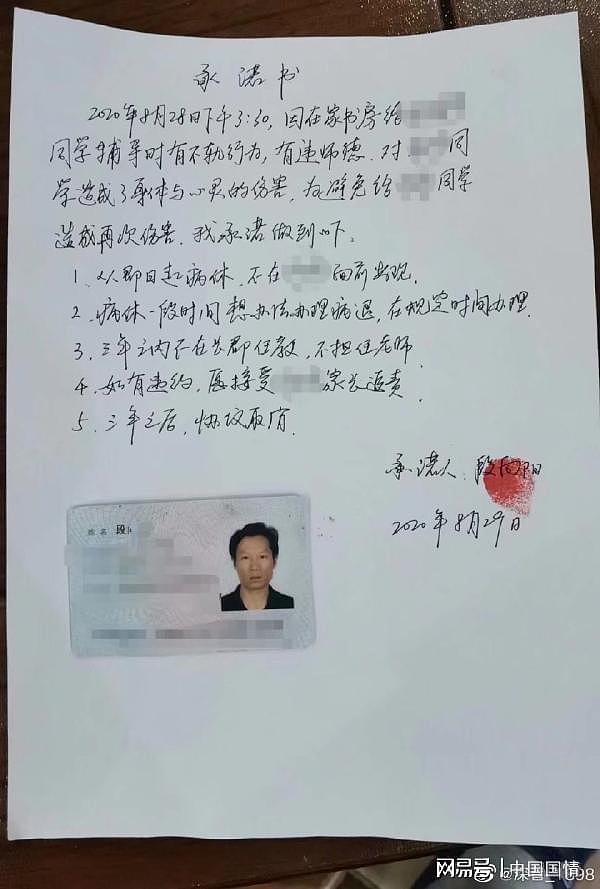 承诺书
2020年8月28日下午3:30,因在家书房给
同学辅导时有不轨行为,有违师德.对 同
学造成了身体与心灵的伤害,为避免给 同学
造成再次伤害.我承诺做到以下:
1、从即日起病休.不在 面前出现.
2、病休一段时间想办法办理病退,在规定时间办理.
3、三年之内不在 任教,不担任老师.
4、如有违约,愿接受 家长追责.
5、三年之后,协议取消.
承诺人:段向阳
2020年8月29日
姓名 段
网易号 | 中国国情